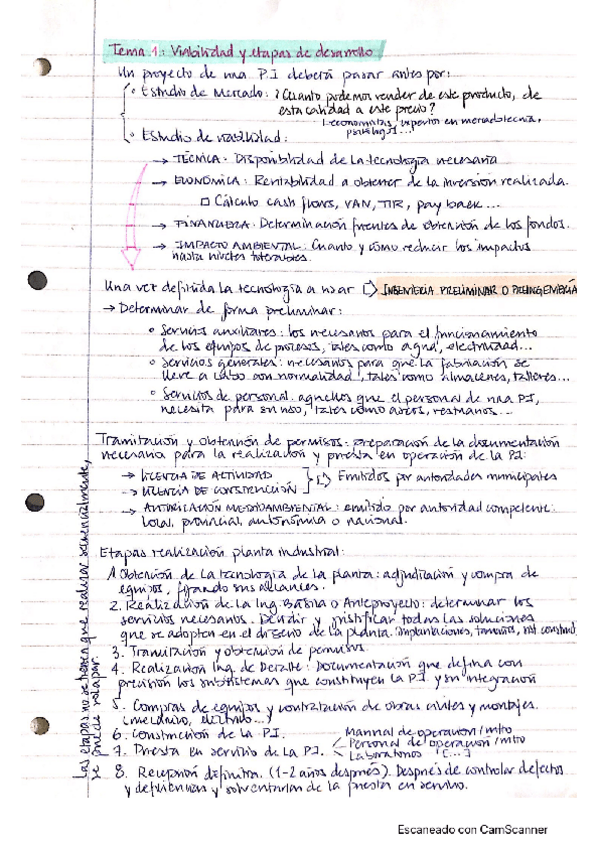 Tema 1: Viabilidad y etapas de desarrollo
Un proyecto de una P.I deberá pasar antes por:
• Estudio de Mercado: ¿Cuánto podemos vender de este producto, de
esta calidad a este precio?
economistas, expertos en mercadotecnia,
psicólogos...
• Estudio de viabilidad:
→ TÉCNICA: Disponibilidad de la tecnología necesaria
→ ECONÓMICA: Rentabilidad a obtener de la inversión realizada.
□ Cálculo cash flows, VAN, TIR, pay back...
→ FINANCIERA: Determinación fuentes de obtención de los fondos.
→ IMPACTO AMBIENTAL: Cuanto y como reducir los impactos
hasta niveles tolerables.
Una vez definida la tecnología a usar ⇨ INGENIERÍA PRELIMINAR O PREINGENIERÍA
→ Determinar de forma preliminar:
◦ Servicios auxiliares: los necesarios para el funcionamiento
de los equipos de procesos, tales como agua, electricidad...
◦ Servicios generales: necesarios para que la fabricación se
lleve a cabo con normalidad, tales como almacenes, talleres...
◦ Servicios de personal: aquellos que el personal de una PI,
necesita para su uso, tales como aseos, restaurantes...
Tramitación y obtención de permisos: preparación de la documentación
necesaria para la realización y puesta en operación de la PI:
→ LICENCIA DE ACTIVIDAD
→ LICENCIA DE CONSTRUCCIÓN
Emitidos por autoridades municipales
→ AUTORIZACIÓN MEDIOAMBIENTAL: emitido por autoridad competente:
local, provincial, autonómica o nacional.
Etapas realización planta industrial:
1. Obtención de la tecnología de la planta: adjudicación y compra de
equipos, fijando sus alcances.
2. Realización de la Ing. Básica o Anteproyecto: determinar los
servicios necesarios. Decidir y justificar todas las soluciones
que se adopten en el diseño de la planta. implantaciones, tamaños,
3. Tramitación y obtención de permisos.
4. Realización Ing. de Detalle: Documentación que defina con
precisión los subsistemas que constituyen la P.I y su integración
5. Compras de equipos y contratación de obras civiles y montajes.
(mecánico, eléctrico...)
6. Construcción de la P.I.
7. Puesta en servicio de la P.I.
Manual de operación/mtto
Personal de operación/mtto
Laboratorios [...]
8. Recepción definitiva. (1-2 años después). Después de controlar defectos
y deficiencias y solventarlas de la puesta en servicio.
Las etapas no se tienen que realizar secuencialmente,
se puede solapar.
Escaneado con CamScanner